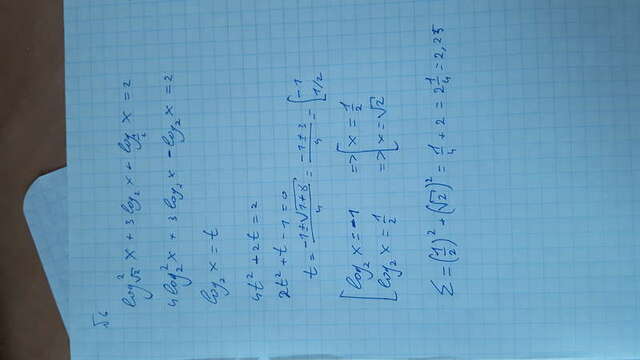 √6
log²_{√2} x + 3 log₂ x + log_{1/2} x = 2
4 log₂² x + 3 log₂ x - log₂ x = 2
log₂ x = t
4t² + 2t = 2
2t² + t - 1 = 0
t = (-1 ± √(1+8))/4 = (-1 ± 3)/4 = [-1 1/2
[log₂ x = -1 => [x = 1/2
log₂ x = 1/2 => x = √2
Σ = (1/2)² + (√2)² = 1/4 + 2 = 2 1/4 = 2,25